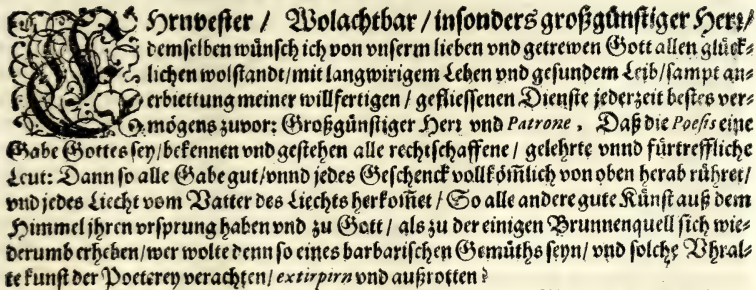 EHrnvester / Wolachtbar / insonders großgünstiger Herr/
demselben wünsch ich von vnserm lieben vnd getrewen Gott allen glück-
lichen wolstandt/mit langwirigem Leben vnd gesundem Leib/sampt an-
erbiettung meiner willfertigen / gefliessenen Dienste jederzeit bestes ver-
mögens zuvor: Großgünstiger Herr vnd Patrone, Daß die Poesis eine
Gabe Gottes sey/bekennen vnd gestehen alle rechtschaffene / gelehrte vnnd fürtreffliche
Leut: Dann so alle Gabe gut/vnnd jedes Geschenck vollkömlich von oben herab rühret/
vnd jedes Liecht vom Vatter des Liechts herkom̃et / So alle andere gute Künst auß dem
Himmel jhren vrsprung haben vnd zu Gott / als zu der einigen Brunnenquell sich wie-
derumb erheben/wer wolte denn so eines barbarischen Gemüths seyn/ vnd solche Vhral-
te kunst der Poeterey verachten/ extirpirn vnd außrotten?